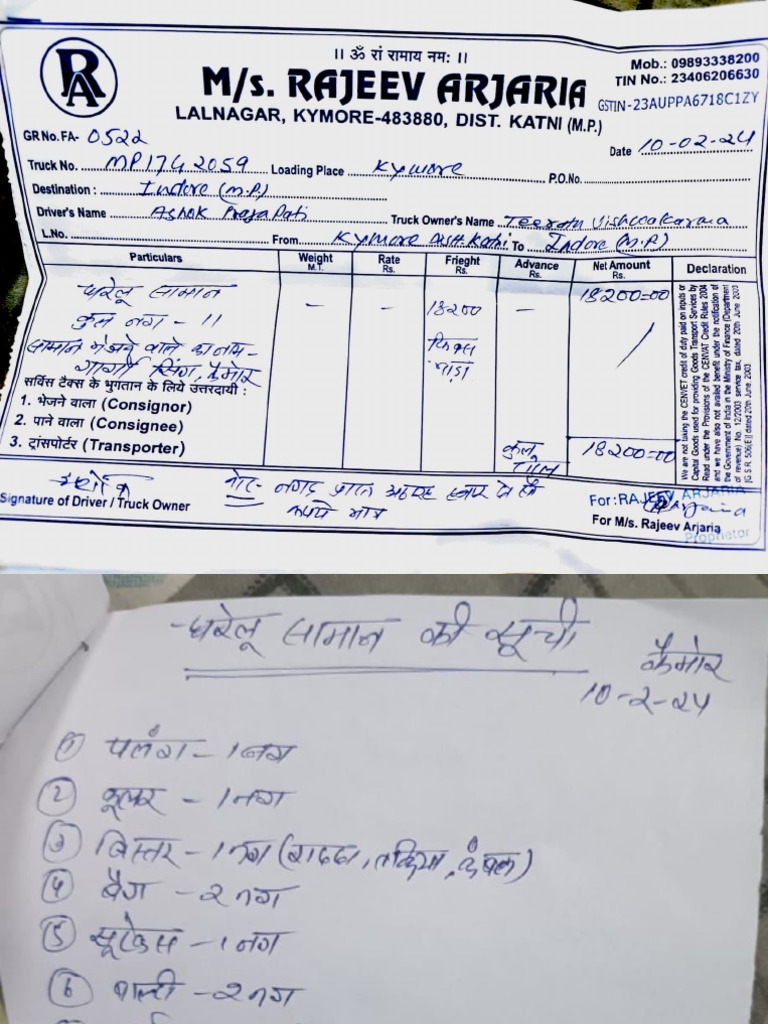 ।। ॐ रां रामाय नमः ।।
RA
M/s. RAJEEV ARJARIA
Mob.: 09893338200
TIN No.: 23406206630
GSTIN-23AUPPA6718C1ZY
LALNAGAR, KYMORE-483880, DIST. KATNI (M.P.)
GR No. FA- 0522
Date 10-02-24
Truck No. MP17G2059 Loading Place Kymore P.O.No.
Destination : Indore (M.P.)
Driver's Name Ashok PrajaPati Truck Owner's Name Teerath Vishwakarma
L.No. From Kymore Distt. Katni To Indore (M.P.)
Particulars Weight M.T. Rate Rs. Frieght Rs. Advance Rs. Net Amount Rs. Declaration
घरेलू सामान - - 18200 - 18200=00
कुल नग - 11
सामान भेजने वाले का नाम - फिक्स भाड़ा
गार्गी सिंग, कैमोर
सर्विस टैक्स के भुगतान के लिये उत्तरदायी :
1. भेजने वाला (Consignor)
2. पाने वाला (Consignee)
3. ट्रांसपोर्टर (Transporter)
कुल 18200=00
We are not taking the CENVET credit of duty paid on inputs or
Capital Goods used for providing Goods Transport Services by
Read under the Provisions of the CENVAT Credit Rules 2004
and we have also not availed benefit under the notification of
the Government of India in the Ministry of Finance (Department
of revenue) No. 12/2003 service tax, dated 20th June 2003
[G.S.R. 506(E)] dated 20th June 2003.
अशोक
Signature of Driver / Truck Owner
नोट- नगद प्राप्त अठारह हजार दो सौ
रूपये मात्र
For: RAJEEV ARJARIA
Arjaria
For M/s. Rajeev Arjaria
Proprietor
घरेलू सामान की सूची
कैमोर
10-2-24
① पलंग - 1 नग
② कूलर - 1 नग
③ बिस्तर - 1 नग (गद्दा, तकिया, कंबल)
④ बैग - 2 नग
⑤ सूटकेस - 1 नग
⑥ बाल्टी - 2 नग